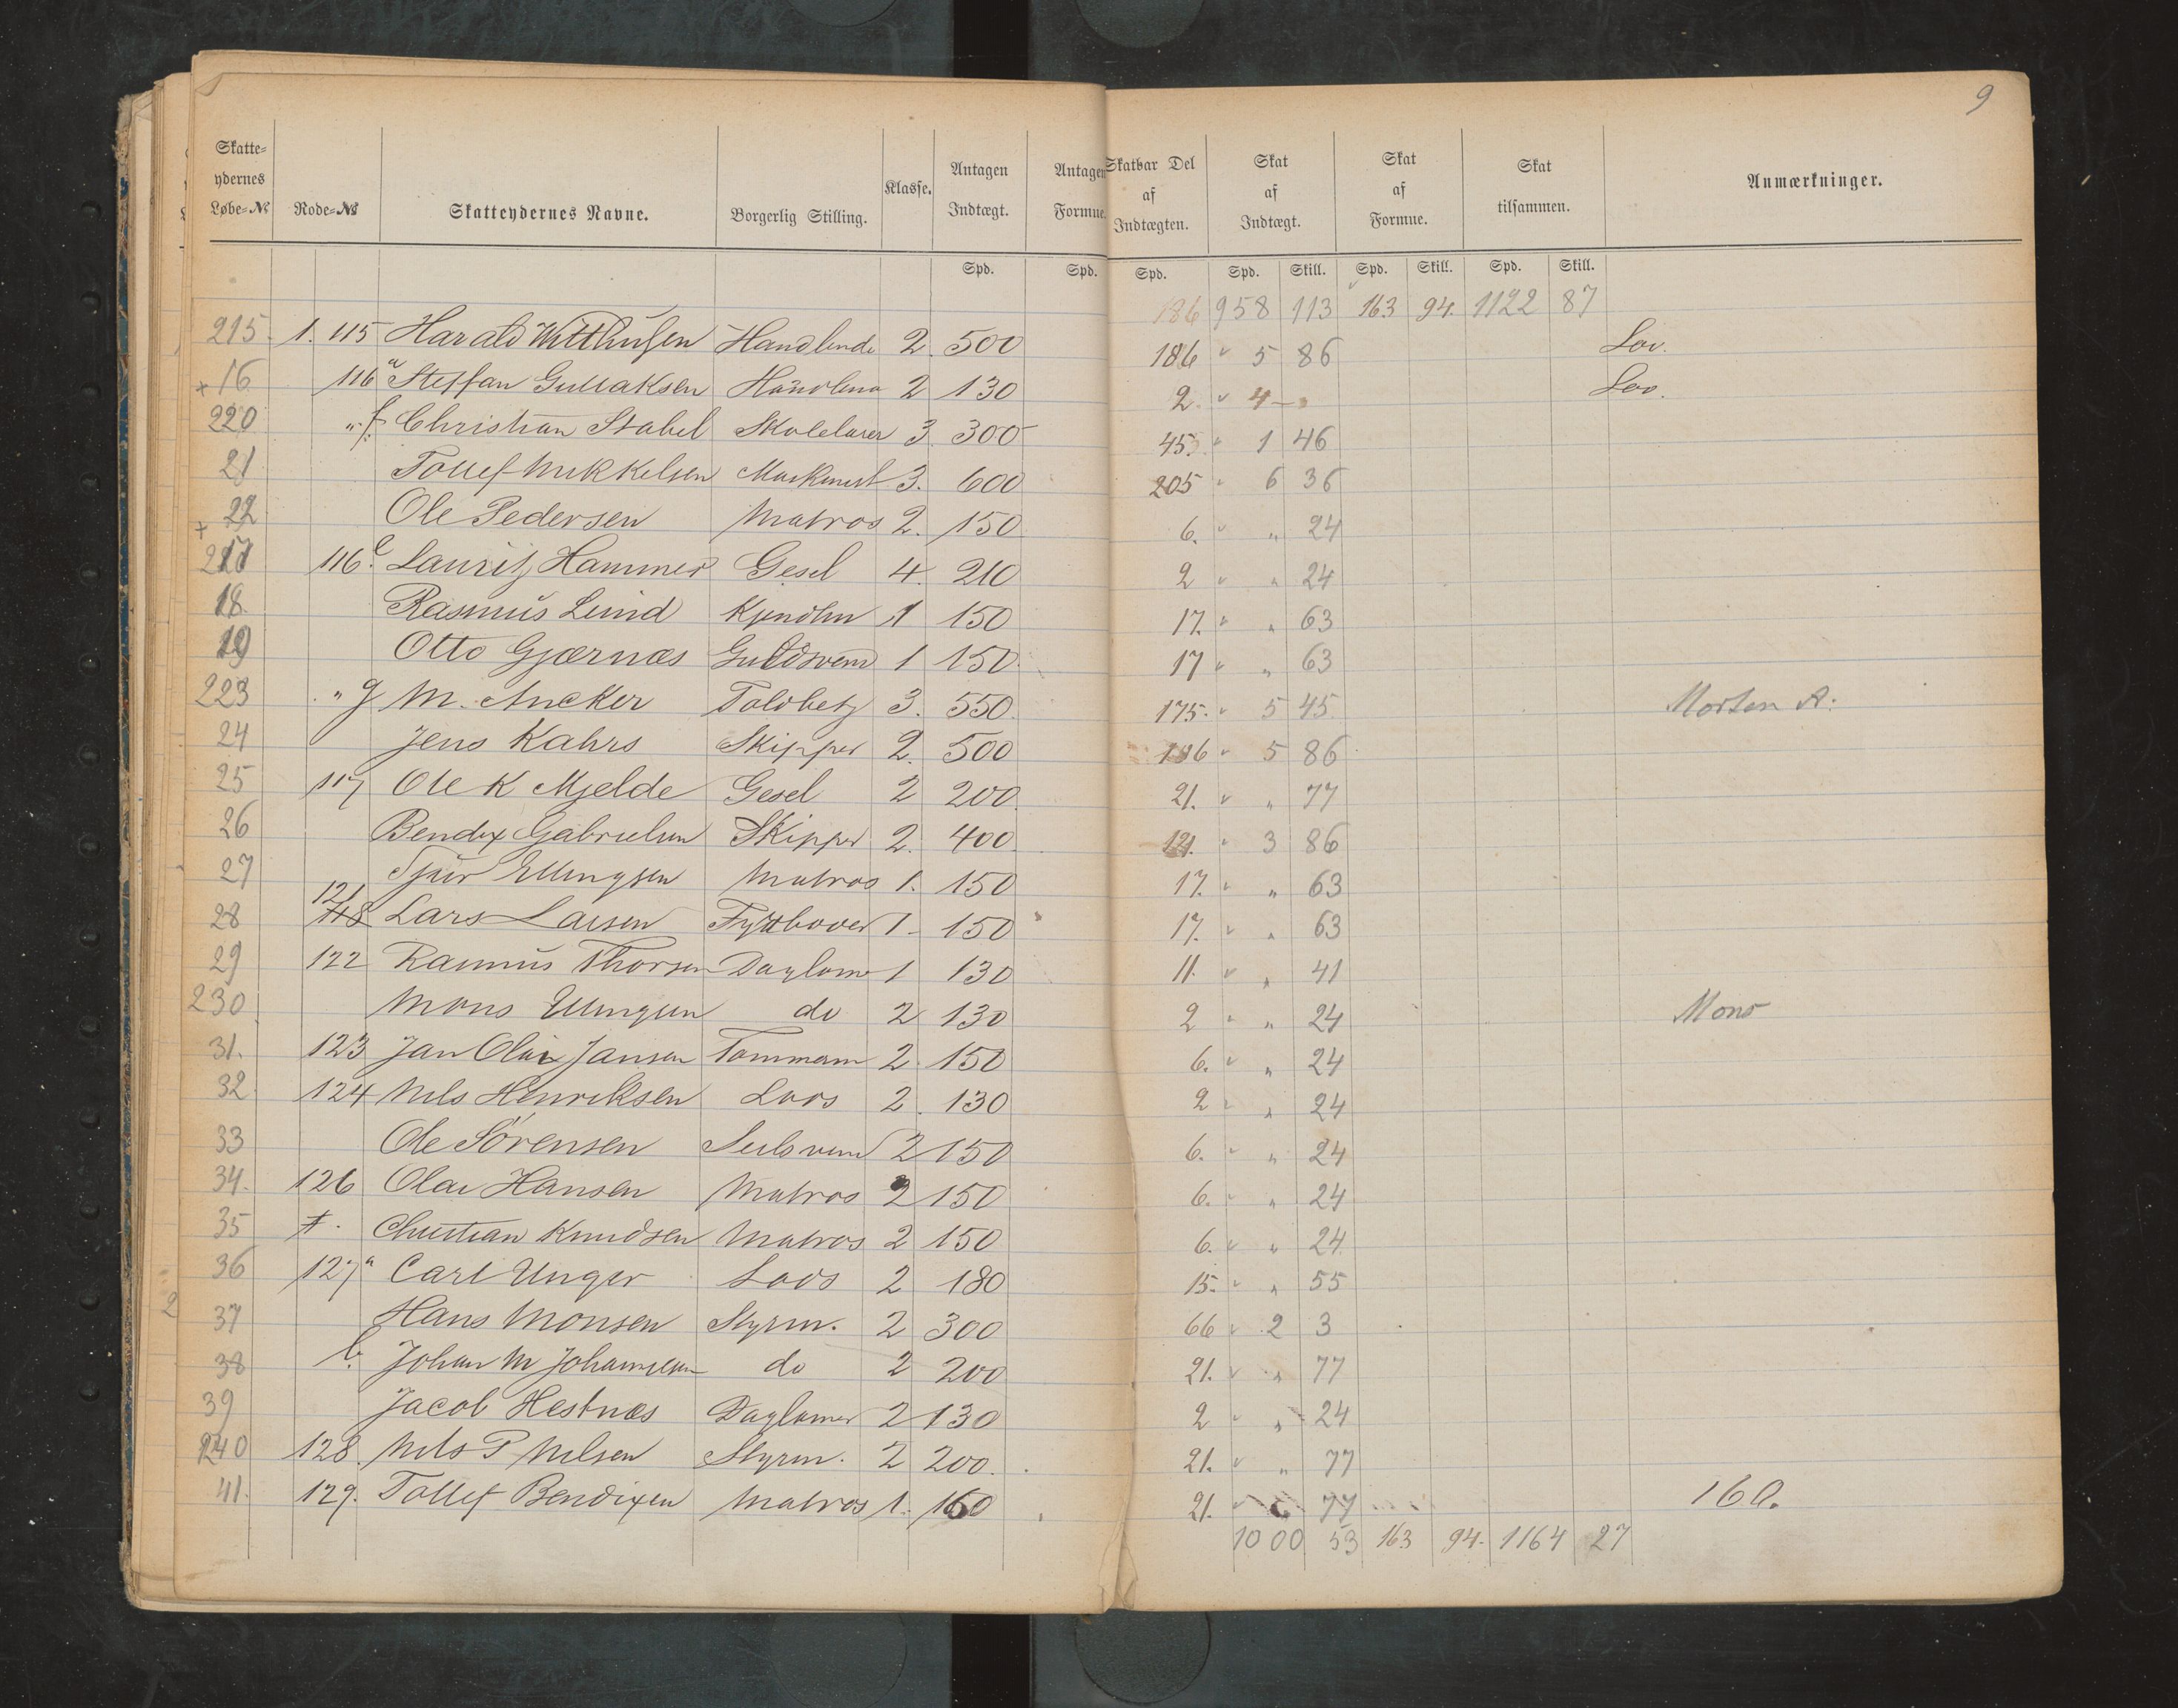 9
Skatte-ydernes Løbe-№ Rode-№ Skatteydernes Navne. Borgerlig Stilling. Klasse. Antagen Indtægt. Antagen Formue. Skatbar Del af Indtægten. Skat af Indtægt. Skat af Formue. Skat tilsammen. Anmærkninger.
Spd. Spd. Spd. Spd. Skill. Spd. Skill. Spd. Skill.
186 958 113 163 94. 1122 87
215. 1. 115 Harald Witthusen Handlende 2. 500 186 5 86 Lov.
+ 16 116 a Steffan Gullaksen 2 130 2. 4 Lov.
220 " f. Christian Stabel Skolelærer 3 300 45. 1 46
21 Tollef Mikkelsen Maskinist 3. 600 205 6 36
+ 22 Ole Pedersen Matros 2. 150 6. " 24
217 116 e Lauritz Hammer Gesel 4. 210 2 " 24
18 Rasmus Lund 1 150 17. " 63
19 Otto Gjærnæs Guldsvend 1 150 17 " 63
223 " g M. Ancker Toldbetj 3. 550. 175. 5 45. Morten A:
24 Jens Kahrs Skipper 2. 500 186 5 86
25 117 Ole K Mjelde Gesel 2 200 21. " 77
26 Bendix Gabrielsen Skipper 2. 400 121. 3 86
27 Sjur Ellingsen Matros 1. 150 17. " 63
28 121 118 Lars Larsen 1 150 17. " 63
29 122 Rasmus Thorsen Daglønner 1 130 11. " 41
230 Mons Ellingsen do 2 130 2 " 24 Mons
31. 123 Jan Olai Jansen Tømmerm 2. 150 6. " 24
32 124 Nils Henriksen Loos 2. 130 2 " 24
33 Ole Sörensen Seilsvend 2 150 6. " 24
34. 126 Olai Hansen Matros 2 150 6. " 24
35 Christian Knudsen Matros 2 150 6. " 24
36 127 a Carl Unger Loos 2 180 15. " 55
37 Hans Monsen Styrm. 2 300 66 2 3
38 b. Johan M Johannesen do 2 200 21. " 77
39 Jacob Hestnæs Daglønner 2 130 2 " 24
240 128. Nils P Nilsen Styrm. 2 200. 21. " 77
41. 129. Tollef Bendixen Matros 1. 160 21. 77 160.
1000 53 163 94. 1164 27